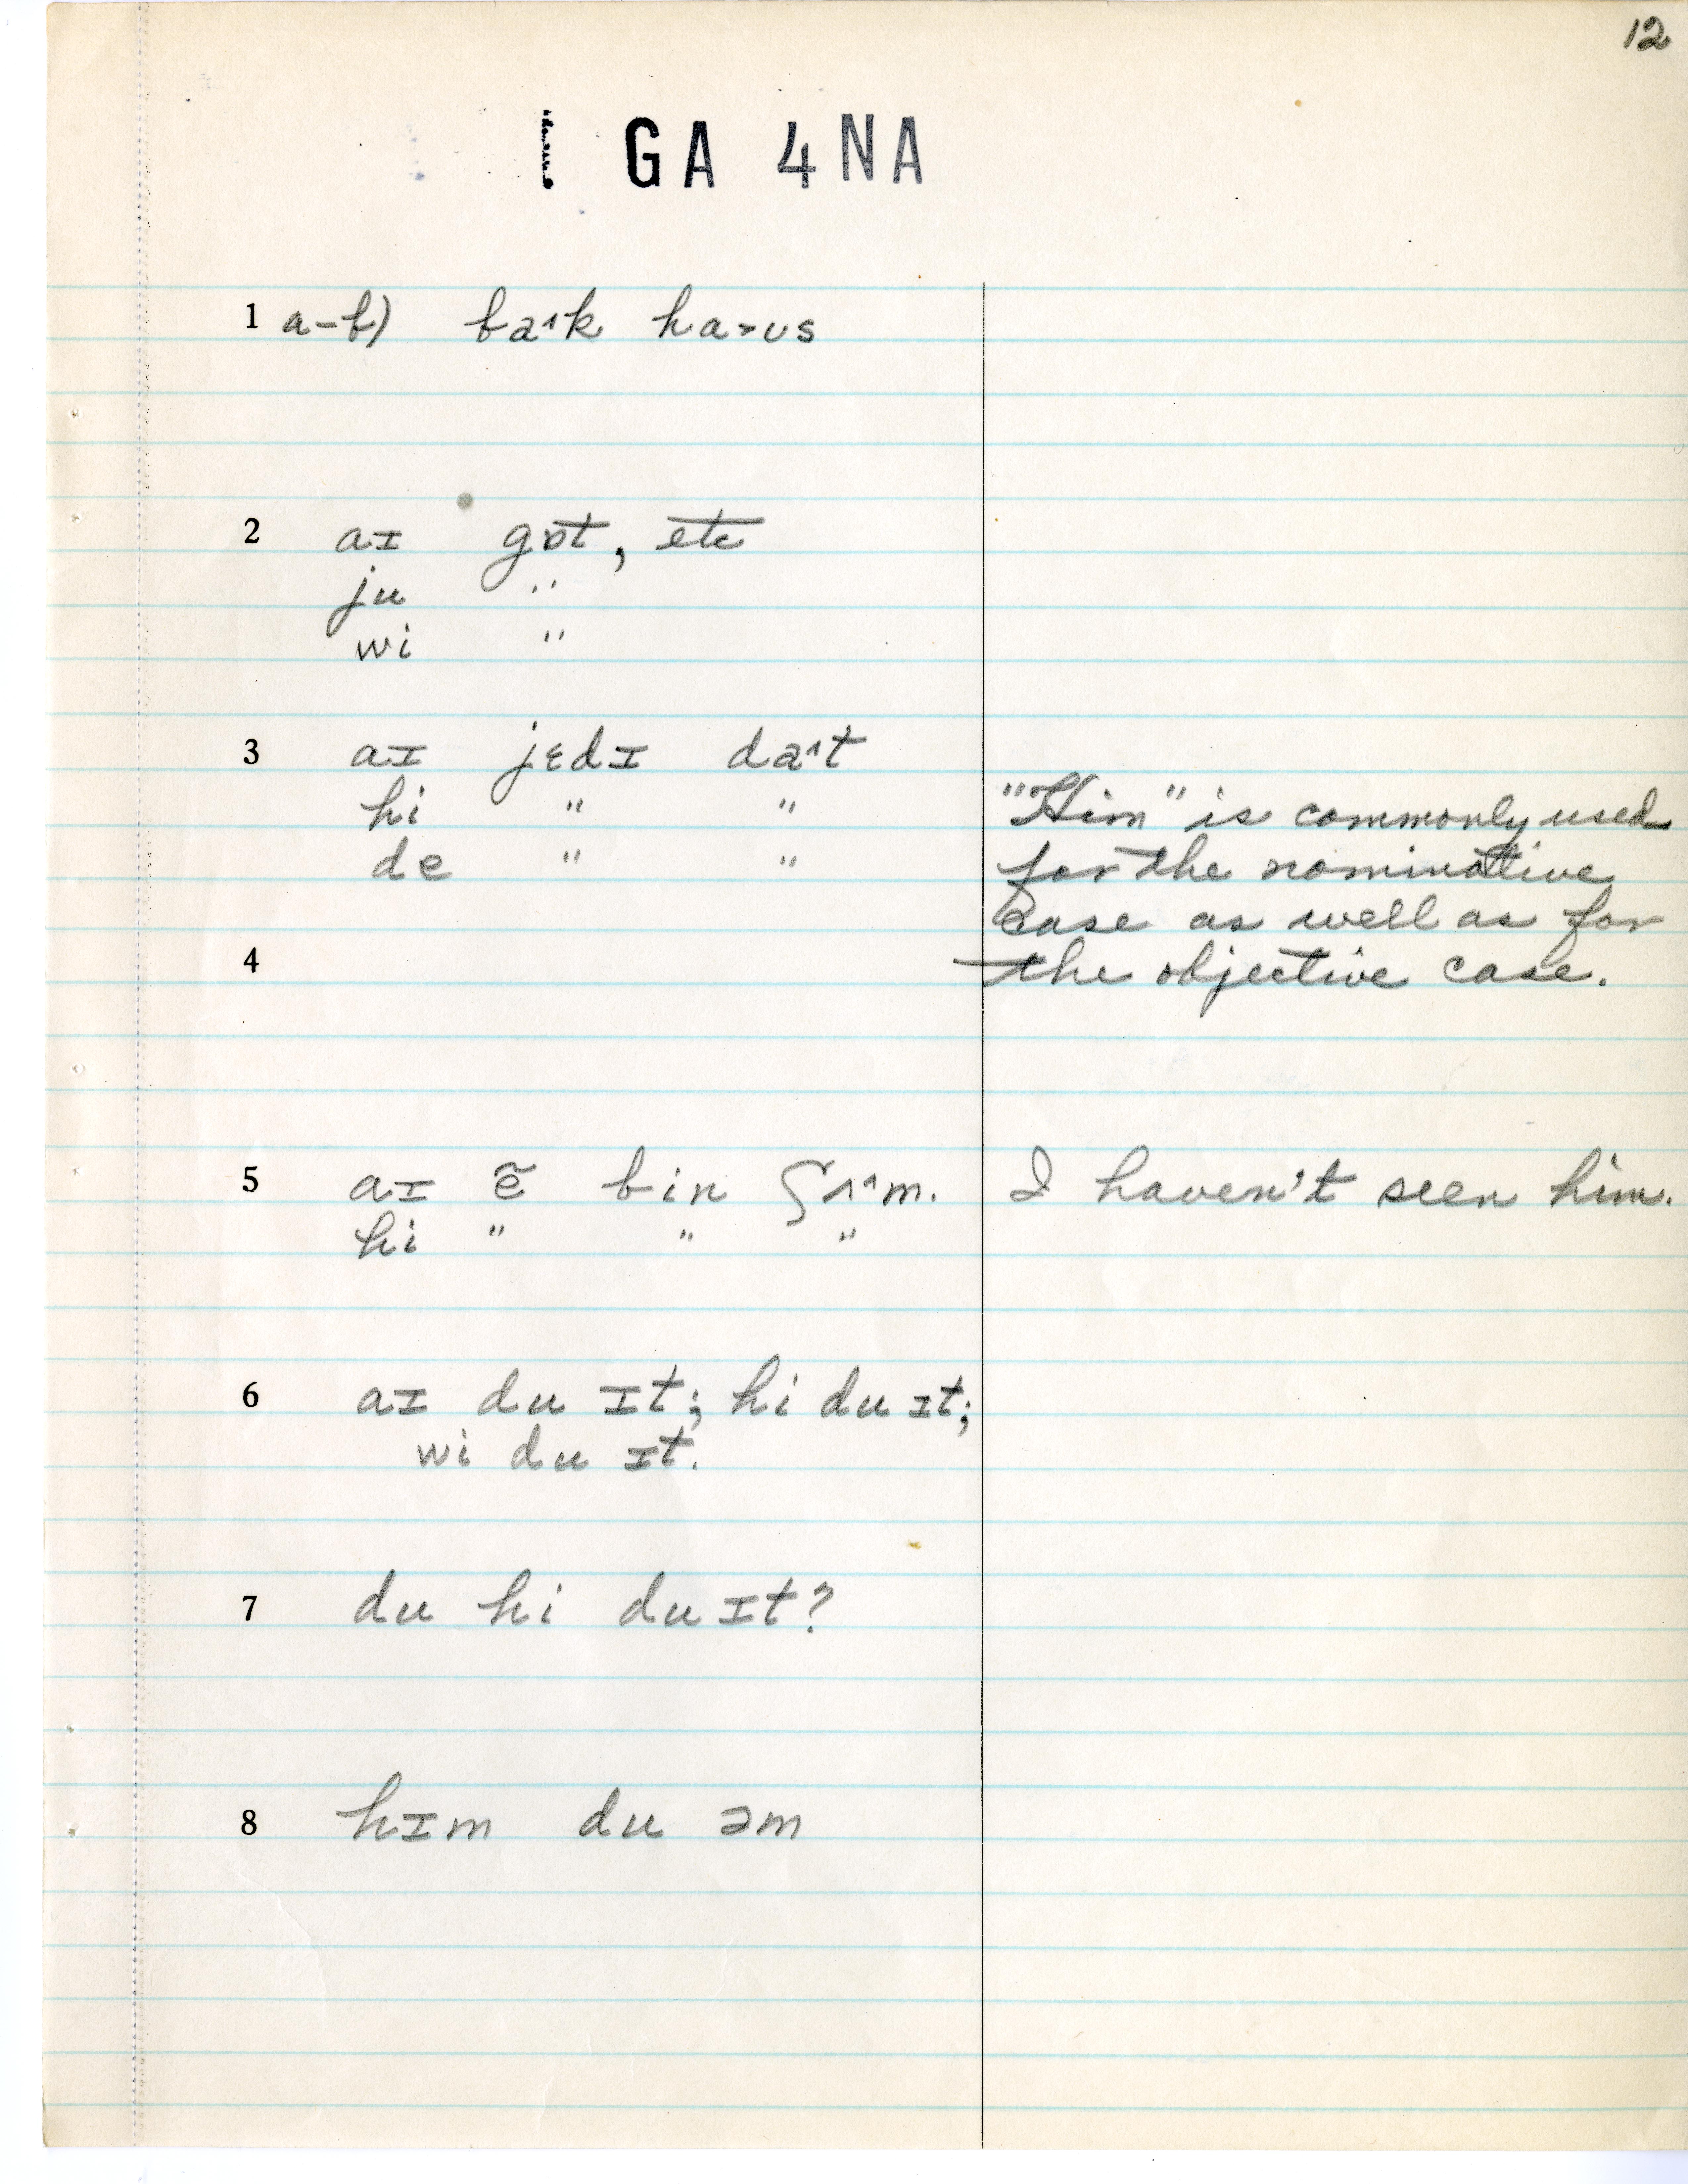 12
GA 4NA
1 a-b) ba˄k ha˃ʊs
2 aɪ gɒt, etc
ju "
wi "
3 aɪ jɛdɪ da˄t
hi " "
de " "
"Him" is commonly used
for the nominative
case as well as for
4 the objective case.
5 aɪ ẽ bin ʃʌ˄m. I haven't seen him.
hi " " "
6 aɪ du ɪt; hi du ɪt;
wi du ɪt.
7 du hi du ɪt?
8 hɪm du əm